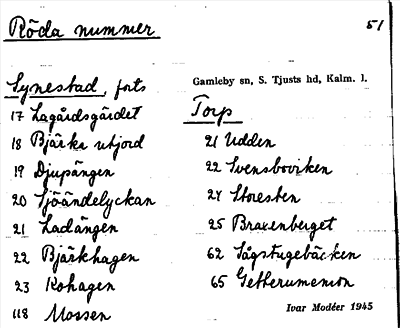 Röda nummer
51
Synestad, forts
17 Lagårdsgärdet
18 Bjärka utjord
19 Djupängen
20 Sjöändelyckan
21 Ladängen
22 Bjärkhagen
23 Kohagen
118 Mossen
Gamleby sn, S. Tjusts hd, Kalm. l.
Torp
21 Udden
22 Svensboviken
24 Storesten
25 Braxenberget
62 Sågstugebäcken
65
Ivar Modéer 1945